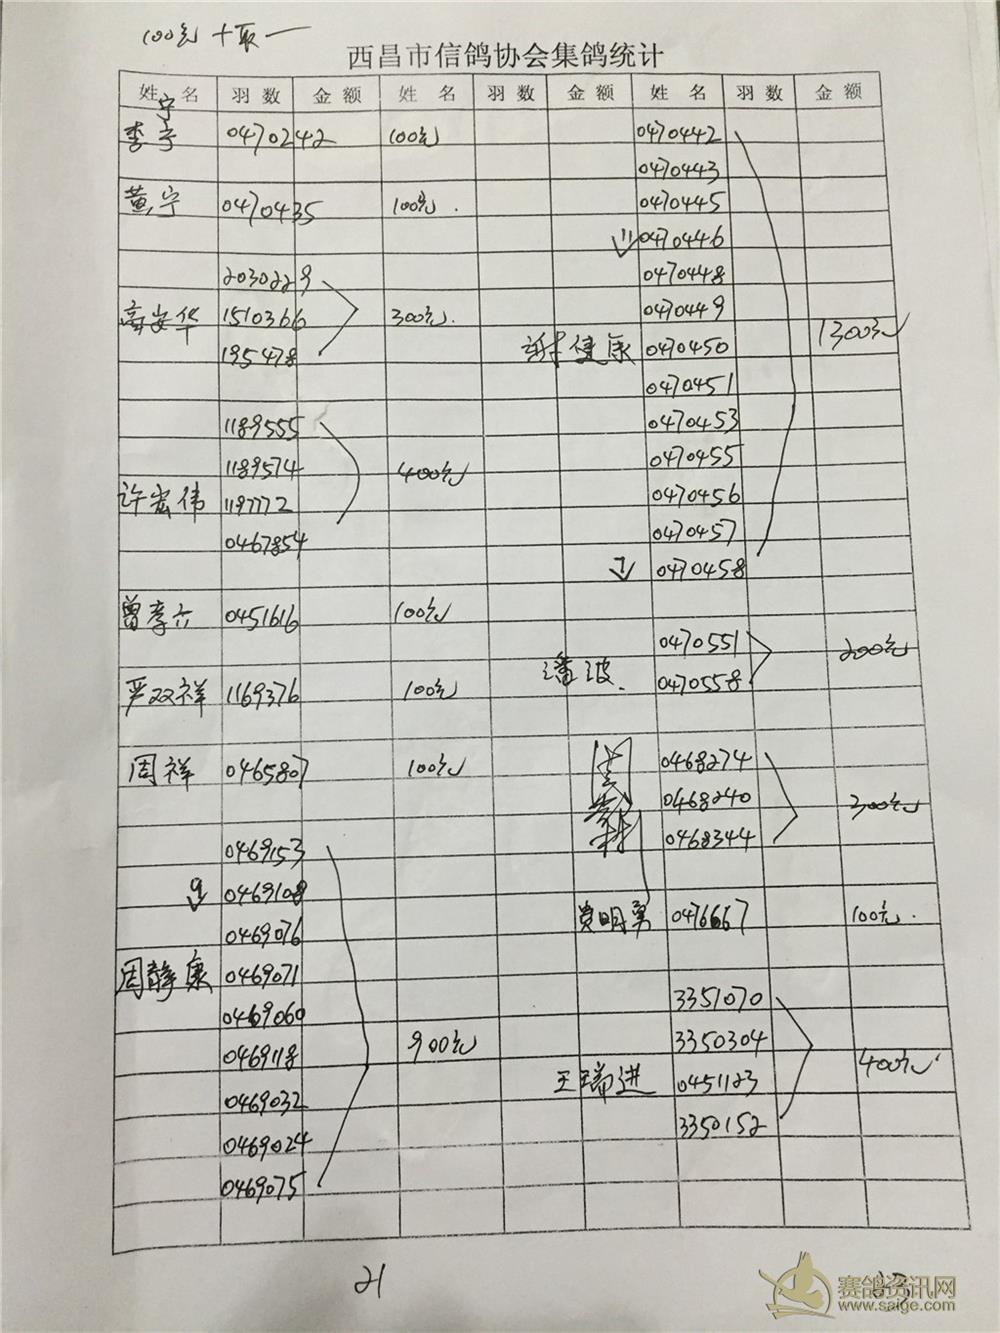 100元 十取一
西昌市信鸽协会集鸽统计
姓 名 羽 数 金 额 姓 名 羽 数 金 额 姓 名 羽 数 金 额
宁
李宁 0470242 100元
黄宁 0470435 100元.
2030229
高安华 1510366 300元.
195478
1189555
1189574 400元
许宏伟 1197772
0467854
曾孝六 0451616 100元
严双祥 1169376 100元
周祥 0465807 100元
0469153
9 0469108
0469076
周静康 0469071
0469060
0469118 900元
0469032
0469024
0469075
21
0470442
0470443
0470445
11 0470446
0470448
0470449
谢健康 0470450 1300元
0470451
0470453
0470455
0470456
0470457
0470458
0470551
潘波. 0470558 200元
0468274
0468240 300元
0468344
贾明勇 0476667 100元.
3351070
3350304
王瑞进 0451123 400元
3350152
23
赛鸽资讯网
www.saige.com